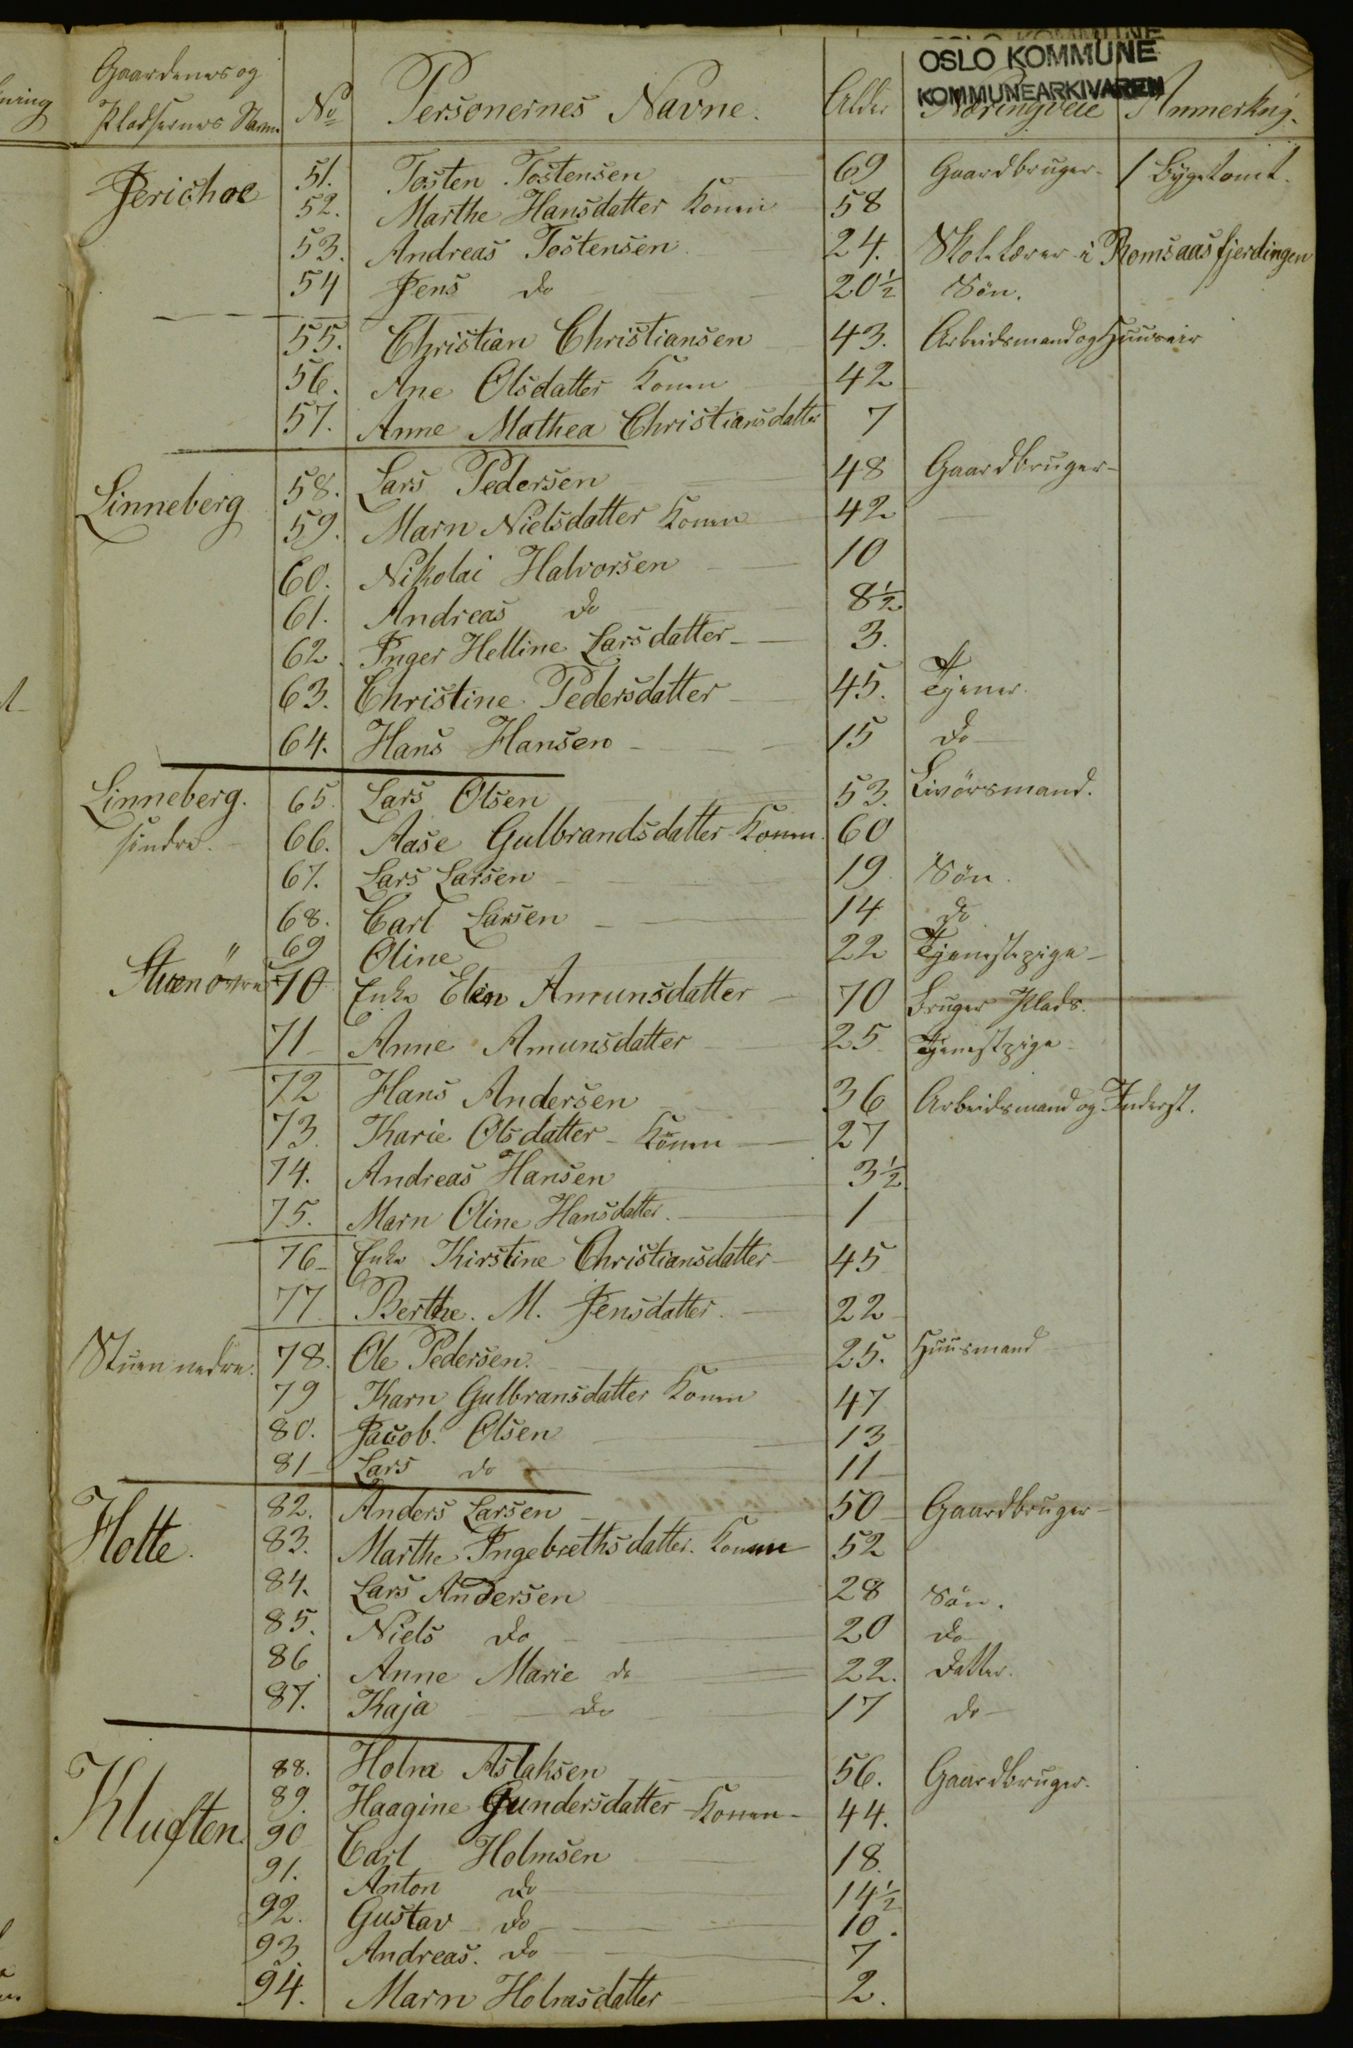 OSLO KOMMUNE
KOMMUNEARKIVAREN
Gaardenes og Pladsernes Navne No Personernes Navne. Alder Næringveie Anmerkng.
Jerichoe 51. Tosten Tostensen 69 Gaardbruger. 1 Bygetomt.
52. Marthe Hansdatter Konen 58
53. Andreas Tostensen 24. Skolelærer i Romsaasfjerdingen
54 Jens do 20½ Søn.
55. Christian Christiansen 43. Arbeidsmand og Huuseier
56. Ane Olsdatter Konen 42
57. Anne Mathea Christiansdatter 7
Linneberg 58. Lars Pedersen 48 Gaardbruger
59. Marn Nielsdatter Konen 42
60. Nikolai Halvorsen 10
61. Andreas do 8½
62. Inger Helline Larsdatter 3.
63. Christine Pedersdatter 45. Tjener
64. Hans Hansen 15 do
Linneberg. søndre. 65. Lars Olsen 53. Livørsmand.
66. Aase Gulbrandsdatter Konen 60
67. Lars Larsen 19 Søn
68. Carl Larsen 14 do
69 Oline 22 Tjenestepige
70 Enke Elen Amunsdatter 70 bruger Plads.
71 Anne Amunsdatter 25 Tjenestpige
72 Hans Andersen 36 Arbeidsmand og Inderst.
73. Karie Olsdatter Konen 27
74. Andreas Hansen 3½
75. Marn Oline Hansdatter. 1
76 Enke Kirstine Christiansdatter 45
77 Berthe. M. Jensdatter. 22
Stuen nedre. 78. Ole Pedersen. 25. Huusmand
79 Karn Gulbransdatter Konen 47
80. Jacob. Olsen 13
81 Lars do 11
Hotte. 82. Anders Larsen 50 Gaardbruger
83. Marthe Ingebrethsdatter. Konen 52
84. Lars Andersen 28 Søn.
85. Niels do 20 do
86 Anne Marie do 22. Datter.
87. Kaja do 17 do
Kluften. 88. Holm Aslaksen 56. Gaardbruger.
89. Haagine Gundersdatter Konen 44.
90 Carl Holmsen 18.
91. Anton do 14½
92. Gustav do 10.
93. Andreas. do 7
94. Marn Holmsdatter 2.